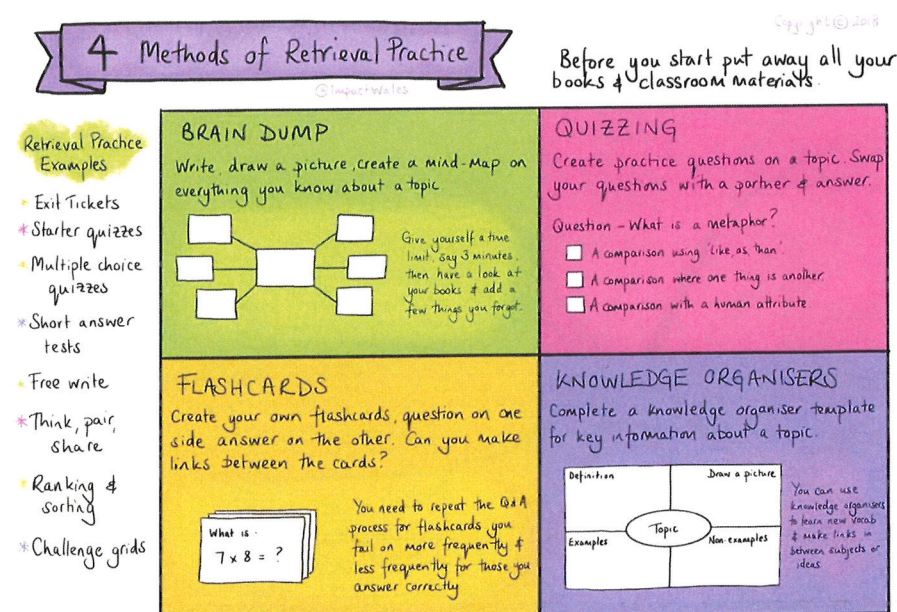 Copyright © 2018
4 Methods of Retrieval Practice
@ImpactWales
Before you start put away all your
books & classroom materials.
Retrieval Practice
Examples
* Exit Tickets
* Starter quizzes
* Multiple choice
quizzes
* Short answer
tests
* Free write
* Think, pair,
share
* Ranking &
sorting
* Challenge grids
BRAIN DUMP
Write, draw a picture, create a mind-map on
everything you know about a topic.
Give yourself a time
limit, say 3 minutes,
then have a look at
your books & add a
few things you forgot.
QUIZZING
Create practice questions on a topic. Swap
your questions with a partner & answer.
Question - What is a metaphor?
A comparison using 'like as than'.
A comparison where one thing is another.
A comparison with a human attribute
FLASHCARDS
Create your own flashcards, question on one
side answer on the other. Can you make
links between the cards?
What is -
7 x 8 = ?
You need to repeat the Q&A
process for flashcards you
fail on more frequently &
less frequently for those you
answer correctly
KNOWLEDGE ORGANISERS
Complete a knowledge organiser template
for key information about a topic.
Definition
Draw a picture
Topic
Examples
Non-examples
You can use
knowledge organisers
to learn new vocab
& make links in
between subjects or
ideas